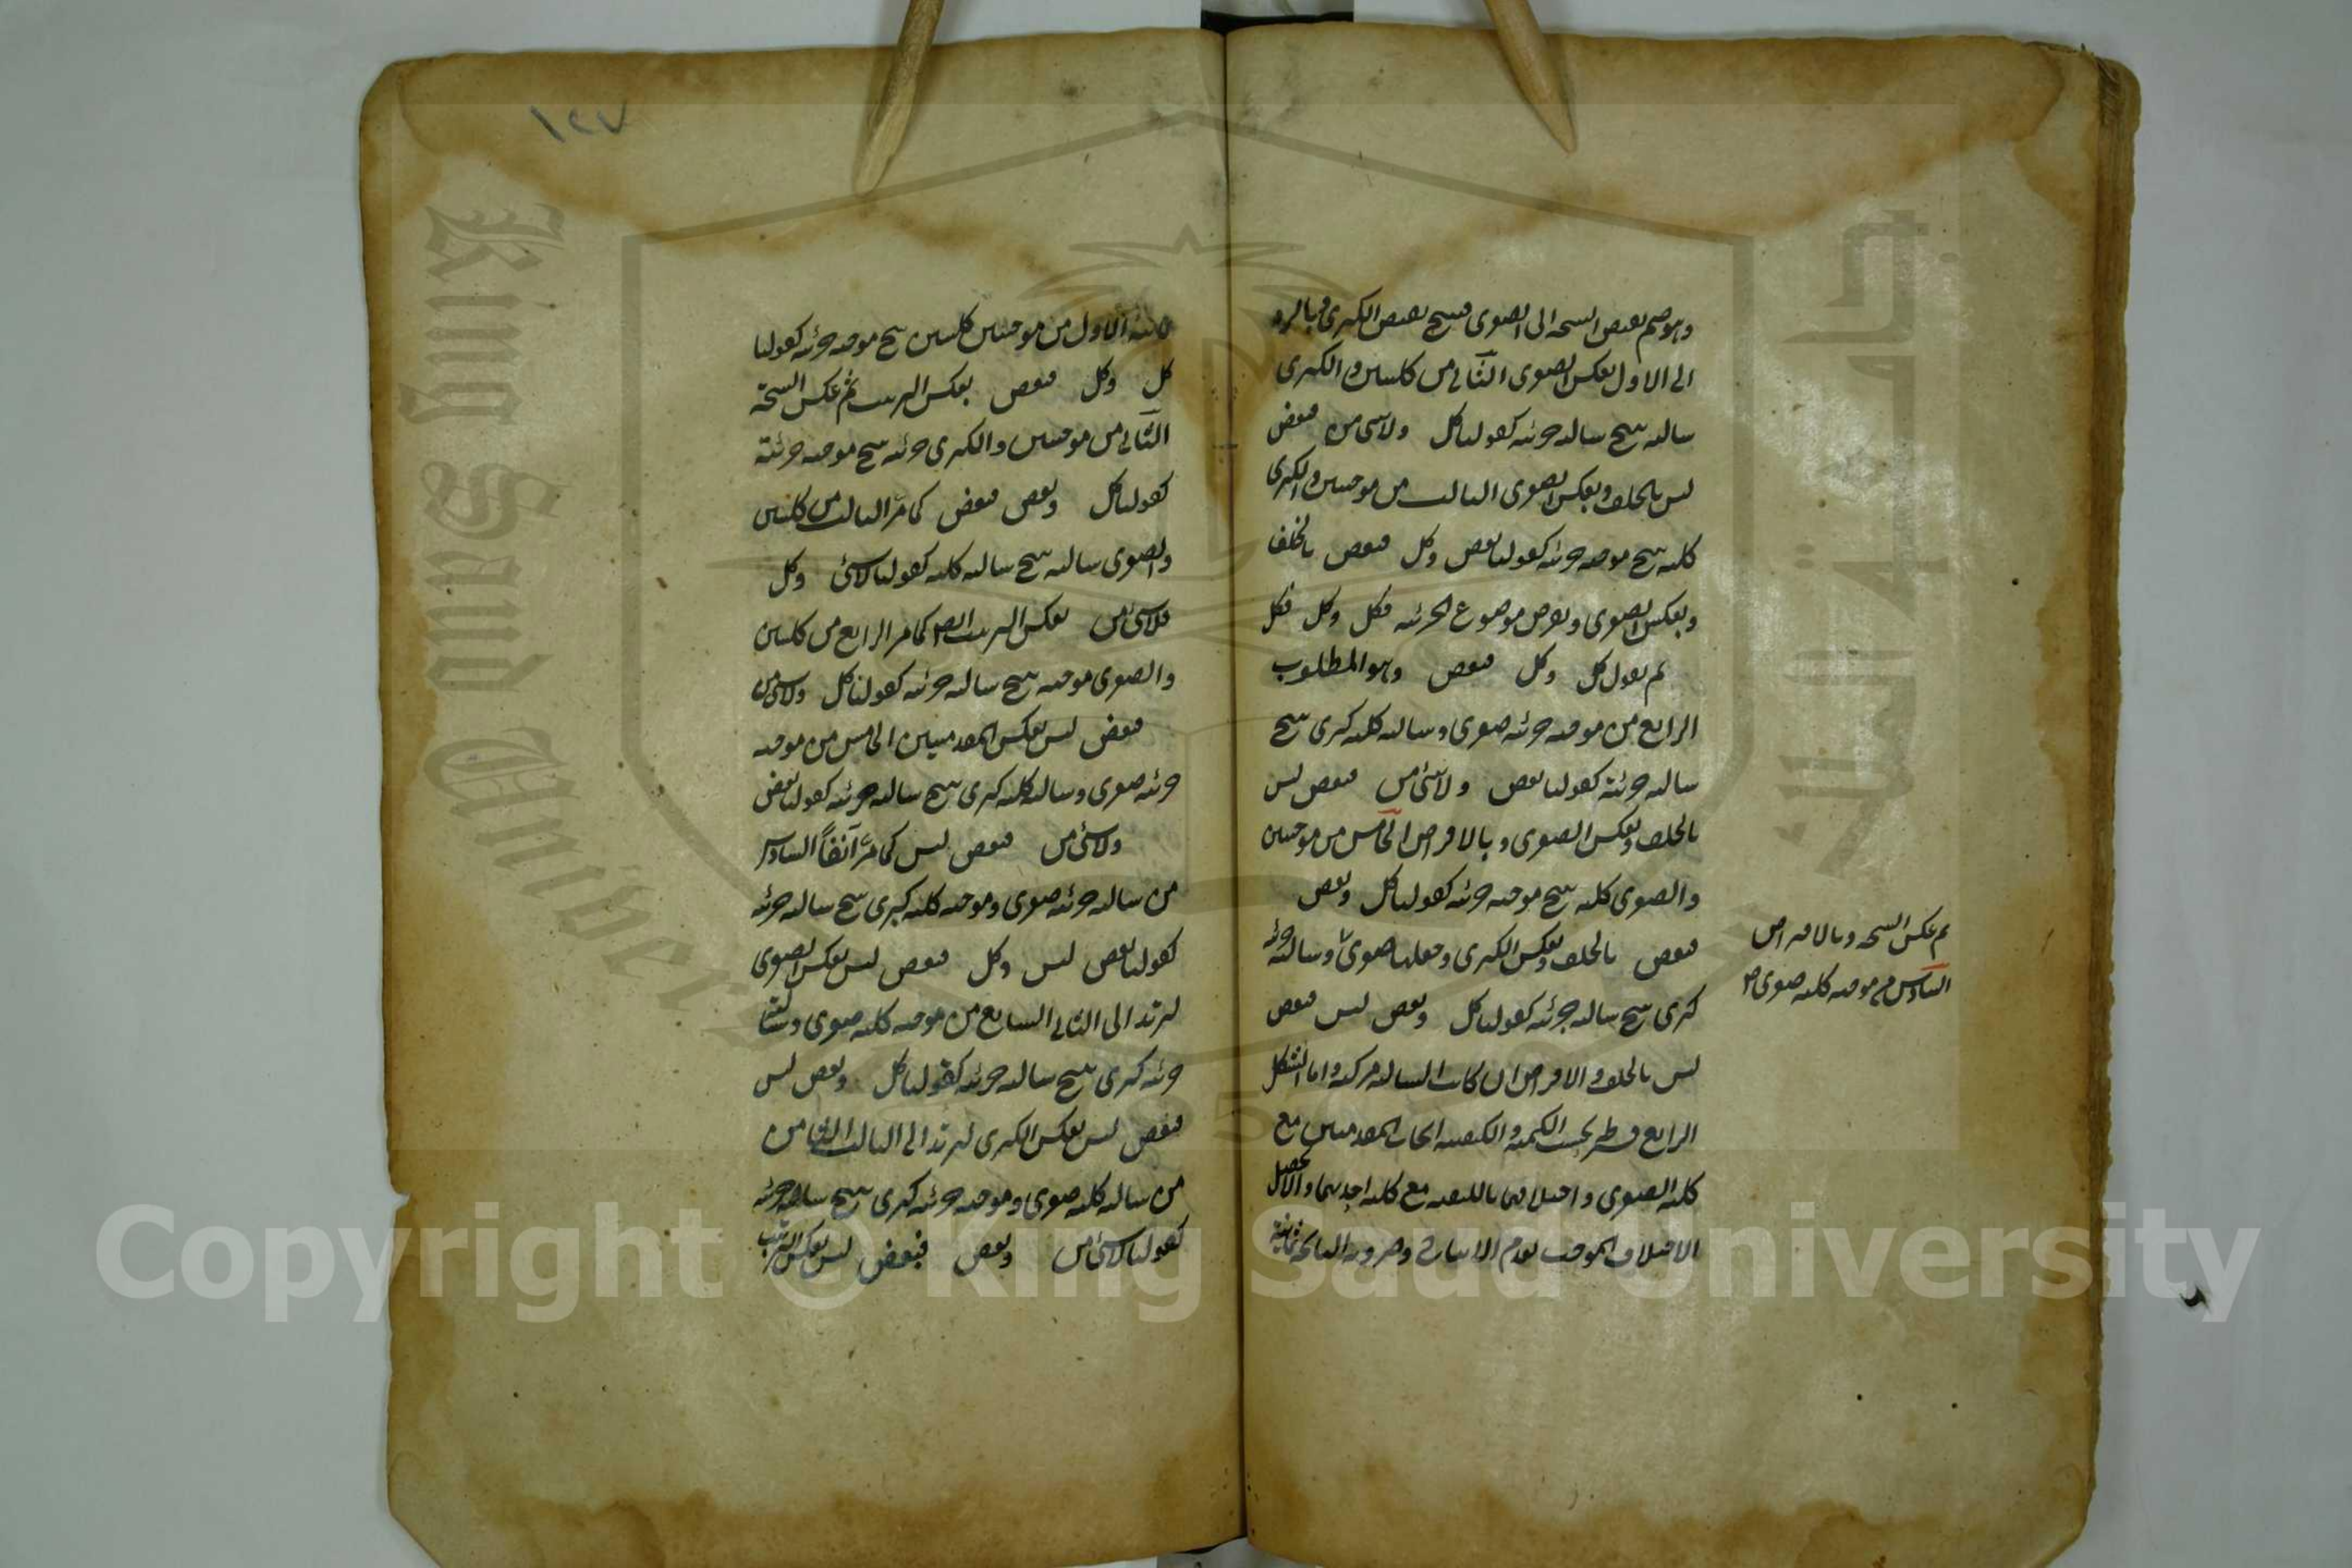 وهو ضم نقيض النتيجة الى الصغرى لينتج نقيض الكبرى وبالرد
الى الاول بعكس الصغرى الثاني من كليتين والكبرى
سالبة ينتج سالبة جزئية كقولنا كل ولا شئ من فبعض
ليس بالخلف وبعكس الصغرى الثالث من موجبتين والكبرى
كلية ينتج موجبة جزئية كقولنا بعض وكل فبعض بالخلف
وبعكس الصغرى وبفرض موضوع الجزئية فكل وكل فكل
ثم نقول كل وكل فبعض وهو المطلوب
الرابع من موجبة جزئية صغرى وسالبة كلية كبرى ينتج
سالبة جزئية كقولنا بعض ولا شئ من فبعض ليس
بالخلف وبعكس الصغرى وبالافتراض الخامس من موجبتين
والصغرى كلية ينتج موجبة جزئية كقولنا كل وبعض
فبعض بالخلف وبعكس الكبرى وجعلها صغرى وسالبة جزئية
كبرى ينتج سالبة جزئية كقولنا كل وبعض ليس فبعض
ليس بالخلف والافتراض ان كانت السالبة مركبة واما الشكل
الرابع فشرطه بحسب الكمية والكيفية ايجاب المقدمتين مع
كلية الصغرى واختلافهما بالكيف مع كلية احديهما والا لحصل
الاختلاف الموجب لعدم الانتاج وضروبه الناتجة ثمانية
ثم عكس النتيجة وبالافتراض
السادس من موجبة كلية صغرى صح
١٢٧
الاول من موجبتين كليتين ينتج موجبة جزئية كقولنا
كل وكل فبعض بعكس الترتيب ثم عكس النتيجة
الثاني من موجبتين والكبرى جزئية ينتج موجبة جزئية
كقولنا كل وبعض فبعض كما مر الثالث من كليتين
والصغرى سالبة ينتج سالبة كلية كقولنا لا شئ وكل
فلا شئ من بعكس الترتيب كما مر الرابع من كليتين
والصغرى موجبة ينتج سالبة جزئية كقولنا كل ولا شئ من
فبعض ليس بعكس المقدمتين الخامس من موجبة
جزئية صغرى وسالبة كلية كبرى ينتج سالبة جزئية كقولنا بعض
ولا شئ من فبعض ليس كما مر آنفاً السادس
من سالبة جزئية صغرى وموجبة كلية كبرى ينتج سالبة جزئية
كقولنا بعض ليس وكل فبعض ليس بعكس الصغرى
ليرتد الى الثاني السابع من موجبة كلية صغرى وسالبة
جزئية كبرى ينتج سالبة جزئية كقولنا كل وبعض ليس
فبعض ليس بعكس الكبرى ليرتد الى الثالث الثامن
من سالبة كلية صغرى وموجبة جزئية كبرى ينتج سالبة جزئية
كقولنا لا شئ من وبعض فبعض ليس بعكس الترتيب
King Saud University
Copyright © King Saud University